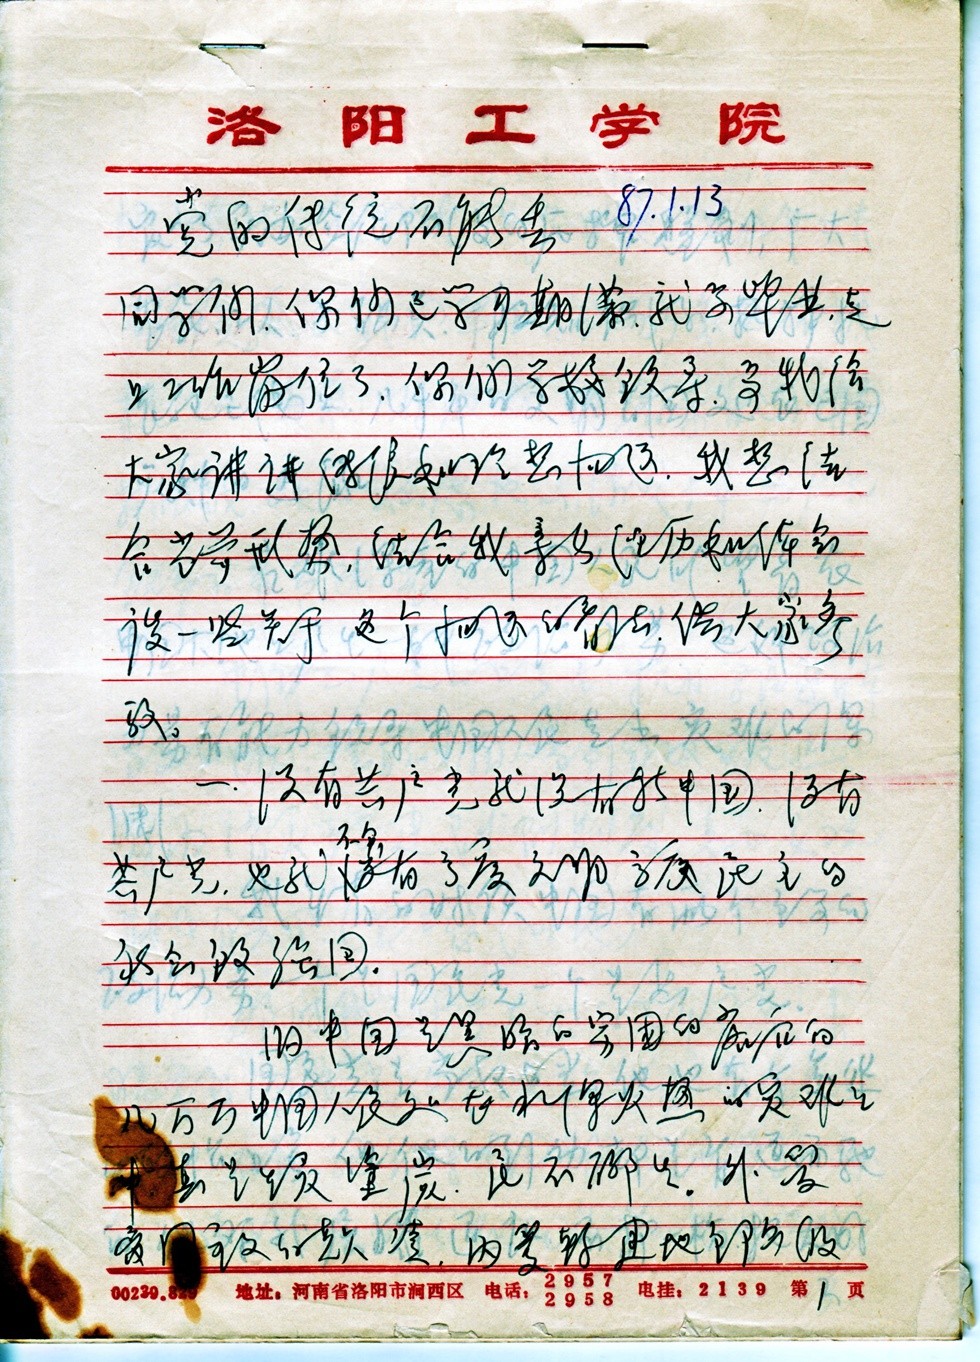 洛阳工学院
党的传统不能丢 87.1.13
同学们、你们已学习期满、就要毕业、走
上工作岗位了、你们学校领导、要我给
大家讲讲传统和理想问题、我想结
合当前形势、结合我亲身经历和体会
谈一些关于这个问题的看法、供大家参
致。
一、没有共产党就没有新中国、没有
不会
共产党、也就没有高度文明高度民主的
社会主义强国。
旧中国是黑暗的贫困的落后的
几万万中国人民处在水深火热的灾难之
中真是生灵涂炭、民不聊生。外受
帝国主义的侵、内受封建地主
00230.829 地址：河南省洛阳市涧西区 电话：2957 2958 电挂：2139 第1页